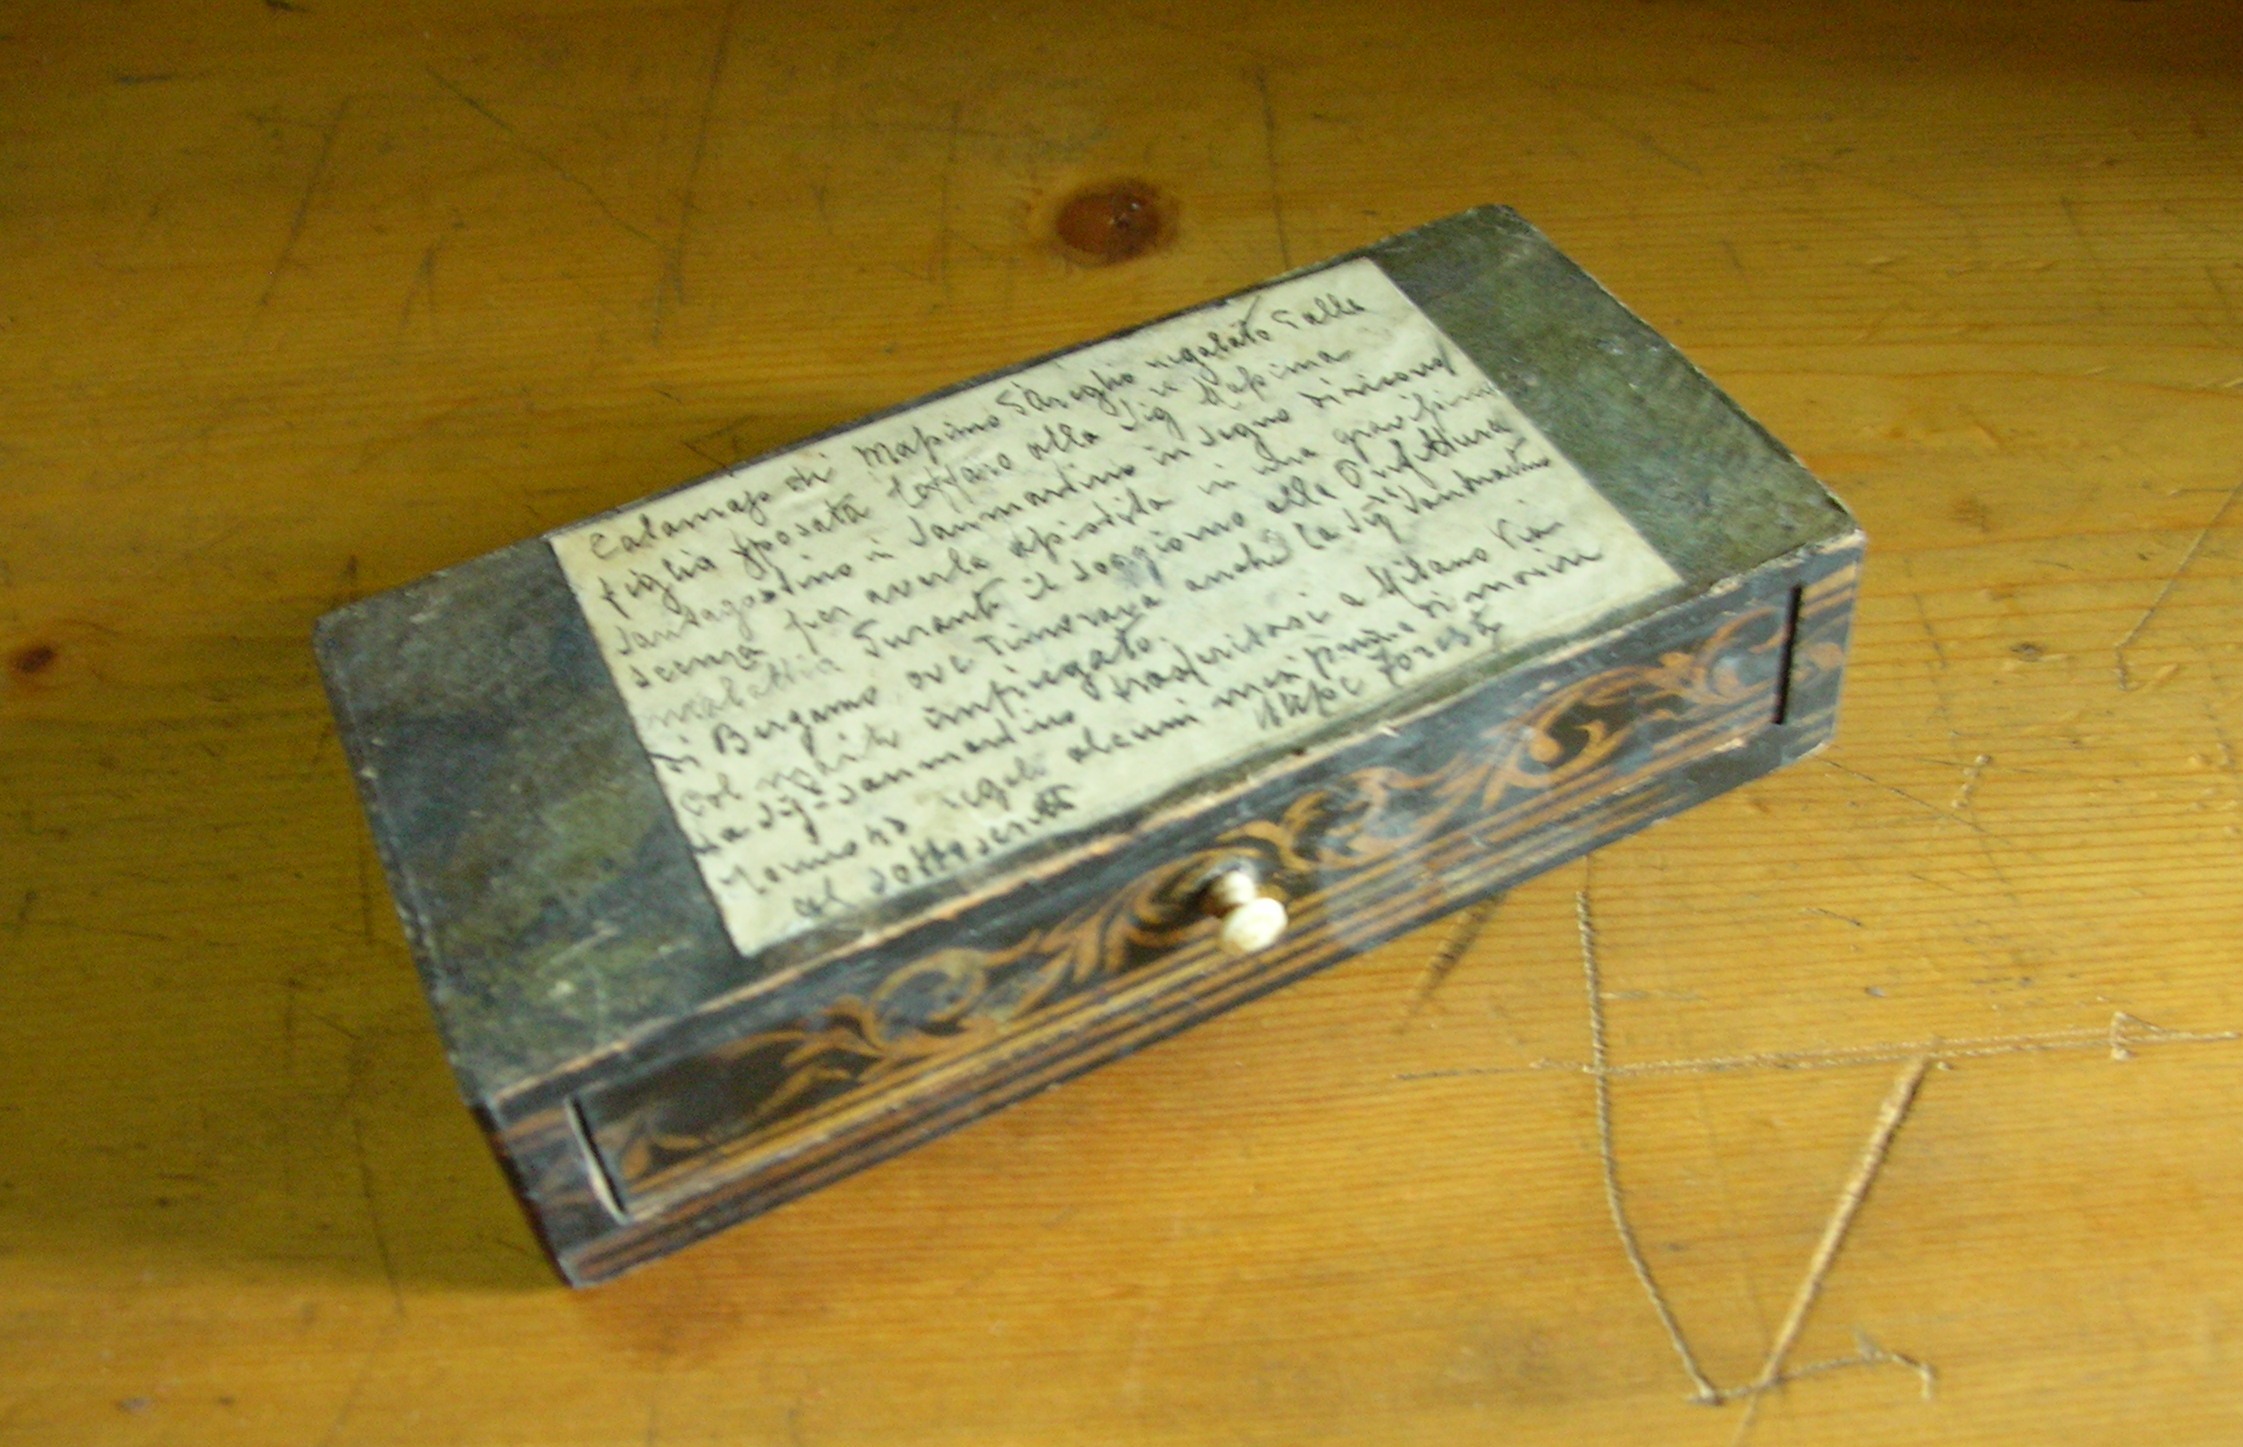 Calamajo di Massimo D'Azeglio regalato dalla
figlia sposata alla Sig Massima
Santagostino in Sanmartino in segno di ricono
scenza per averla assistita in una gravissima
malattia durante il soggiorno alla Prefettura
di Bergamo ove dimorava anche la Sig Sanmartino
col marito impiegato
La Sig. Sanmartino trasferitasi a Milano Via
regalò alcuni mesi prima di morire
al sottoscritto